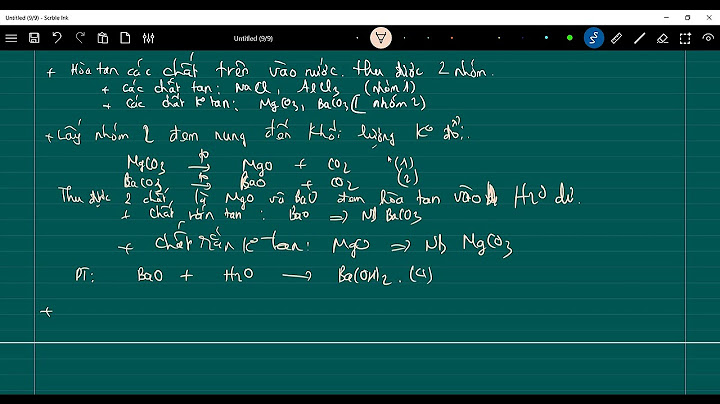 Untitled (9/9) - Scrble Ink
Untitled (9/9)
+ Hòa tan các chất trên vào nước. thu được 2 nhóm.
+ các chất tan: NaCl, AlCl3 (nhóm 1)
+ các chất ko tan: MgCO3, BaCO3 ( nhóm 2)
+ Lấy nhóm 2 đem nung đến khối lượng ko đổi.
MgCO3 →to MgO + CO2 (1)
BaCO3 →to BaO + CO2 (2)
Thu được 2 chất là MgO và BaO đem hòa tan vào H2O dư.
+ chất rắn tan: BaO => Nb BaCO3
+ chất rắn ko tan: MgO => Nb MgCO3
PT: BaO + H2O → Ba(OH)2.
+